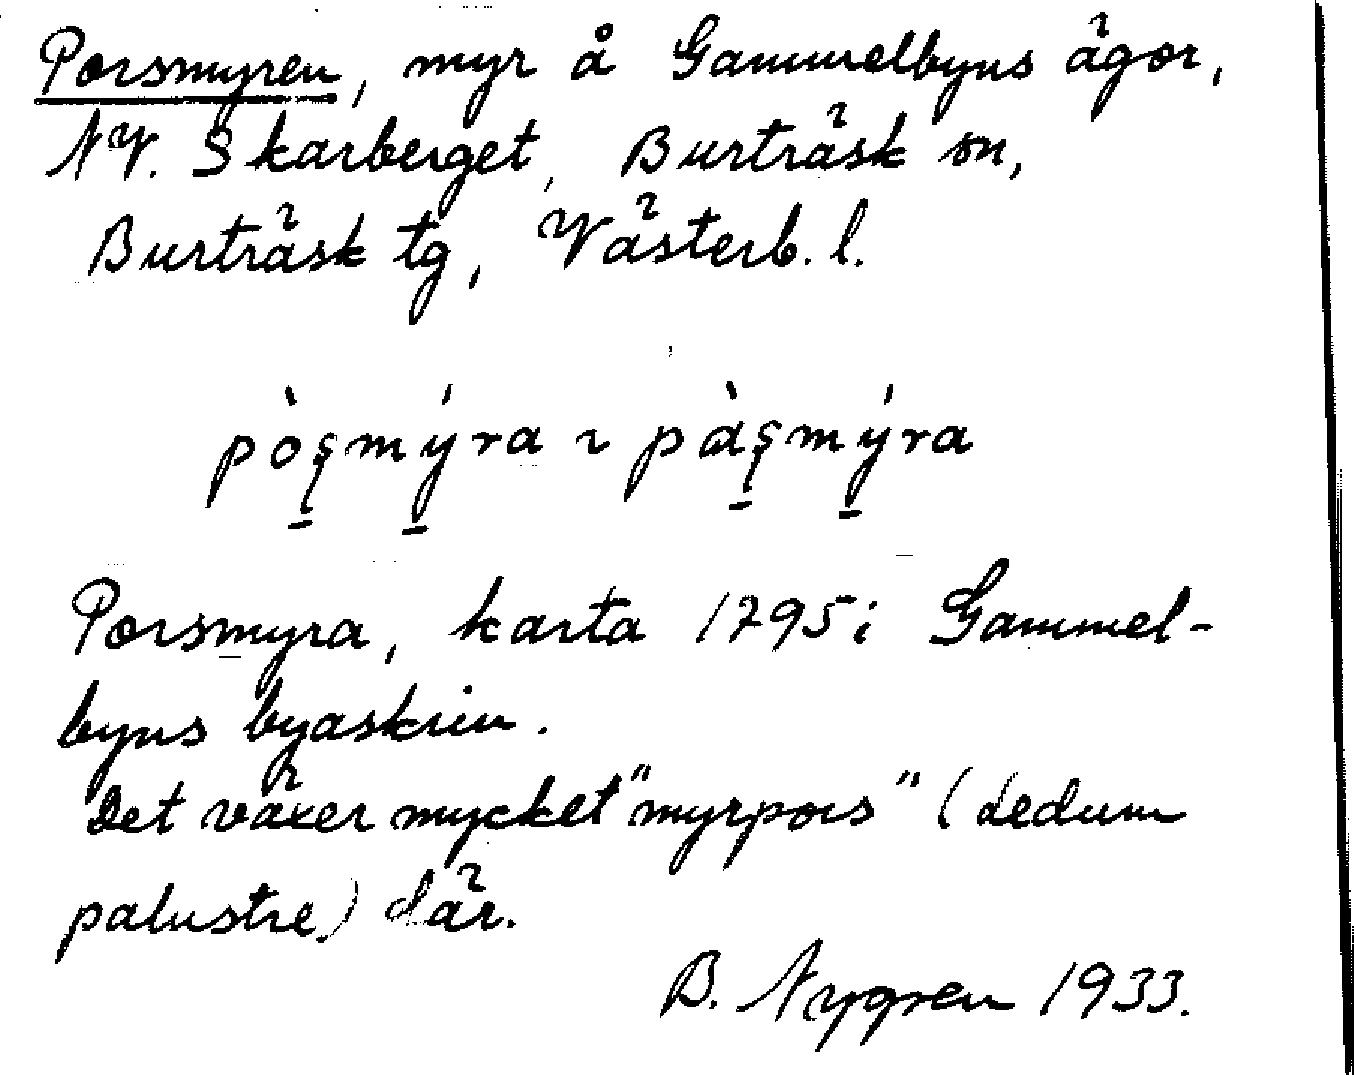 Porsmyren, myr å Gammelbyns ägor,
NV. Skarberget, Burträsk sn,
Burträsk tg, Västerb. l.
pòʂmýra ~ pàʂmýra
Porsmyra, karta 1795 i Gammel-
byns byaskrin.
Det växer mycket "myrpors" (Ledum
palustre) där.
B. Nygren 1933.